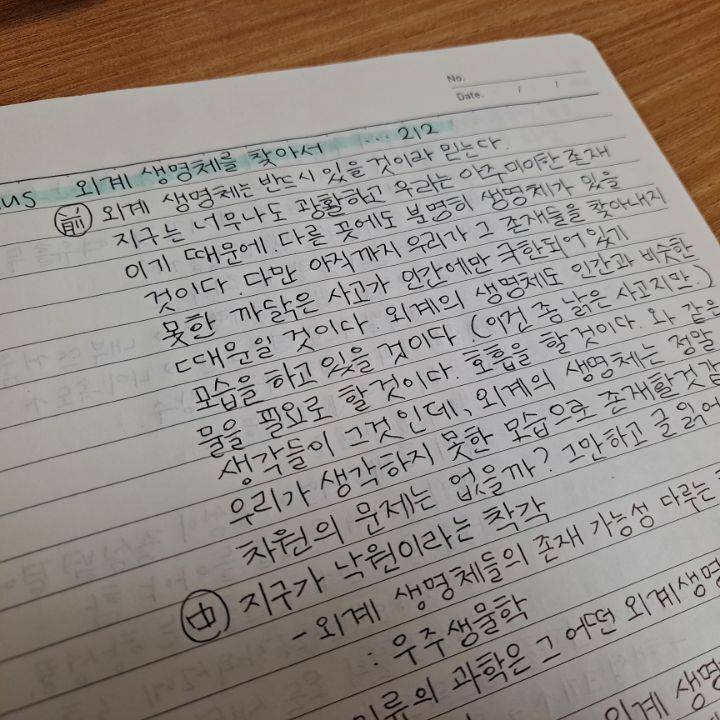 No.
Date. / /
us 외계 생명체를 찾아서 ... 212
前 외계 생명체는 반드시 있을 것이라 믿는다.
지구는 너무나도 광활하고 우리는 아주 미미한 존재
이기 때문에 다른 곳에도 분명히 생명체가 있을
것이다. 다만 아직까지 우리가 그 존재들을 찾아내지
못한 까닭은 사고가 인간에만 국한되어 있기
때문일 것이다. 외계의 생명체도 인간과 비슷한
모습을 하고 있을 것이다 (이건 좀 낡은 사고지만.)
물을 필요로 할 것이다. 호흡을 할 것이다. 와 같은
생각들이 그것인데, 외계의 생명체는 정말
우리가 생각하지 못한 모습으로 존재할것같
차원의 문제는 없을까? 그만하고 글 읽어
中 지구가 낙원이라는 착각
- 외계 생명체들의 존재 가능성 다루는
: 우주생물학
인류의 과학은 그 어떤 외계생명
외계 생명